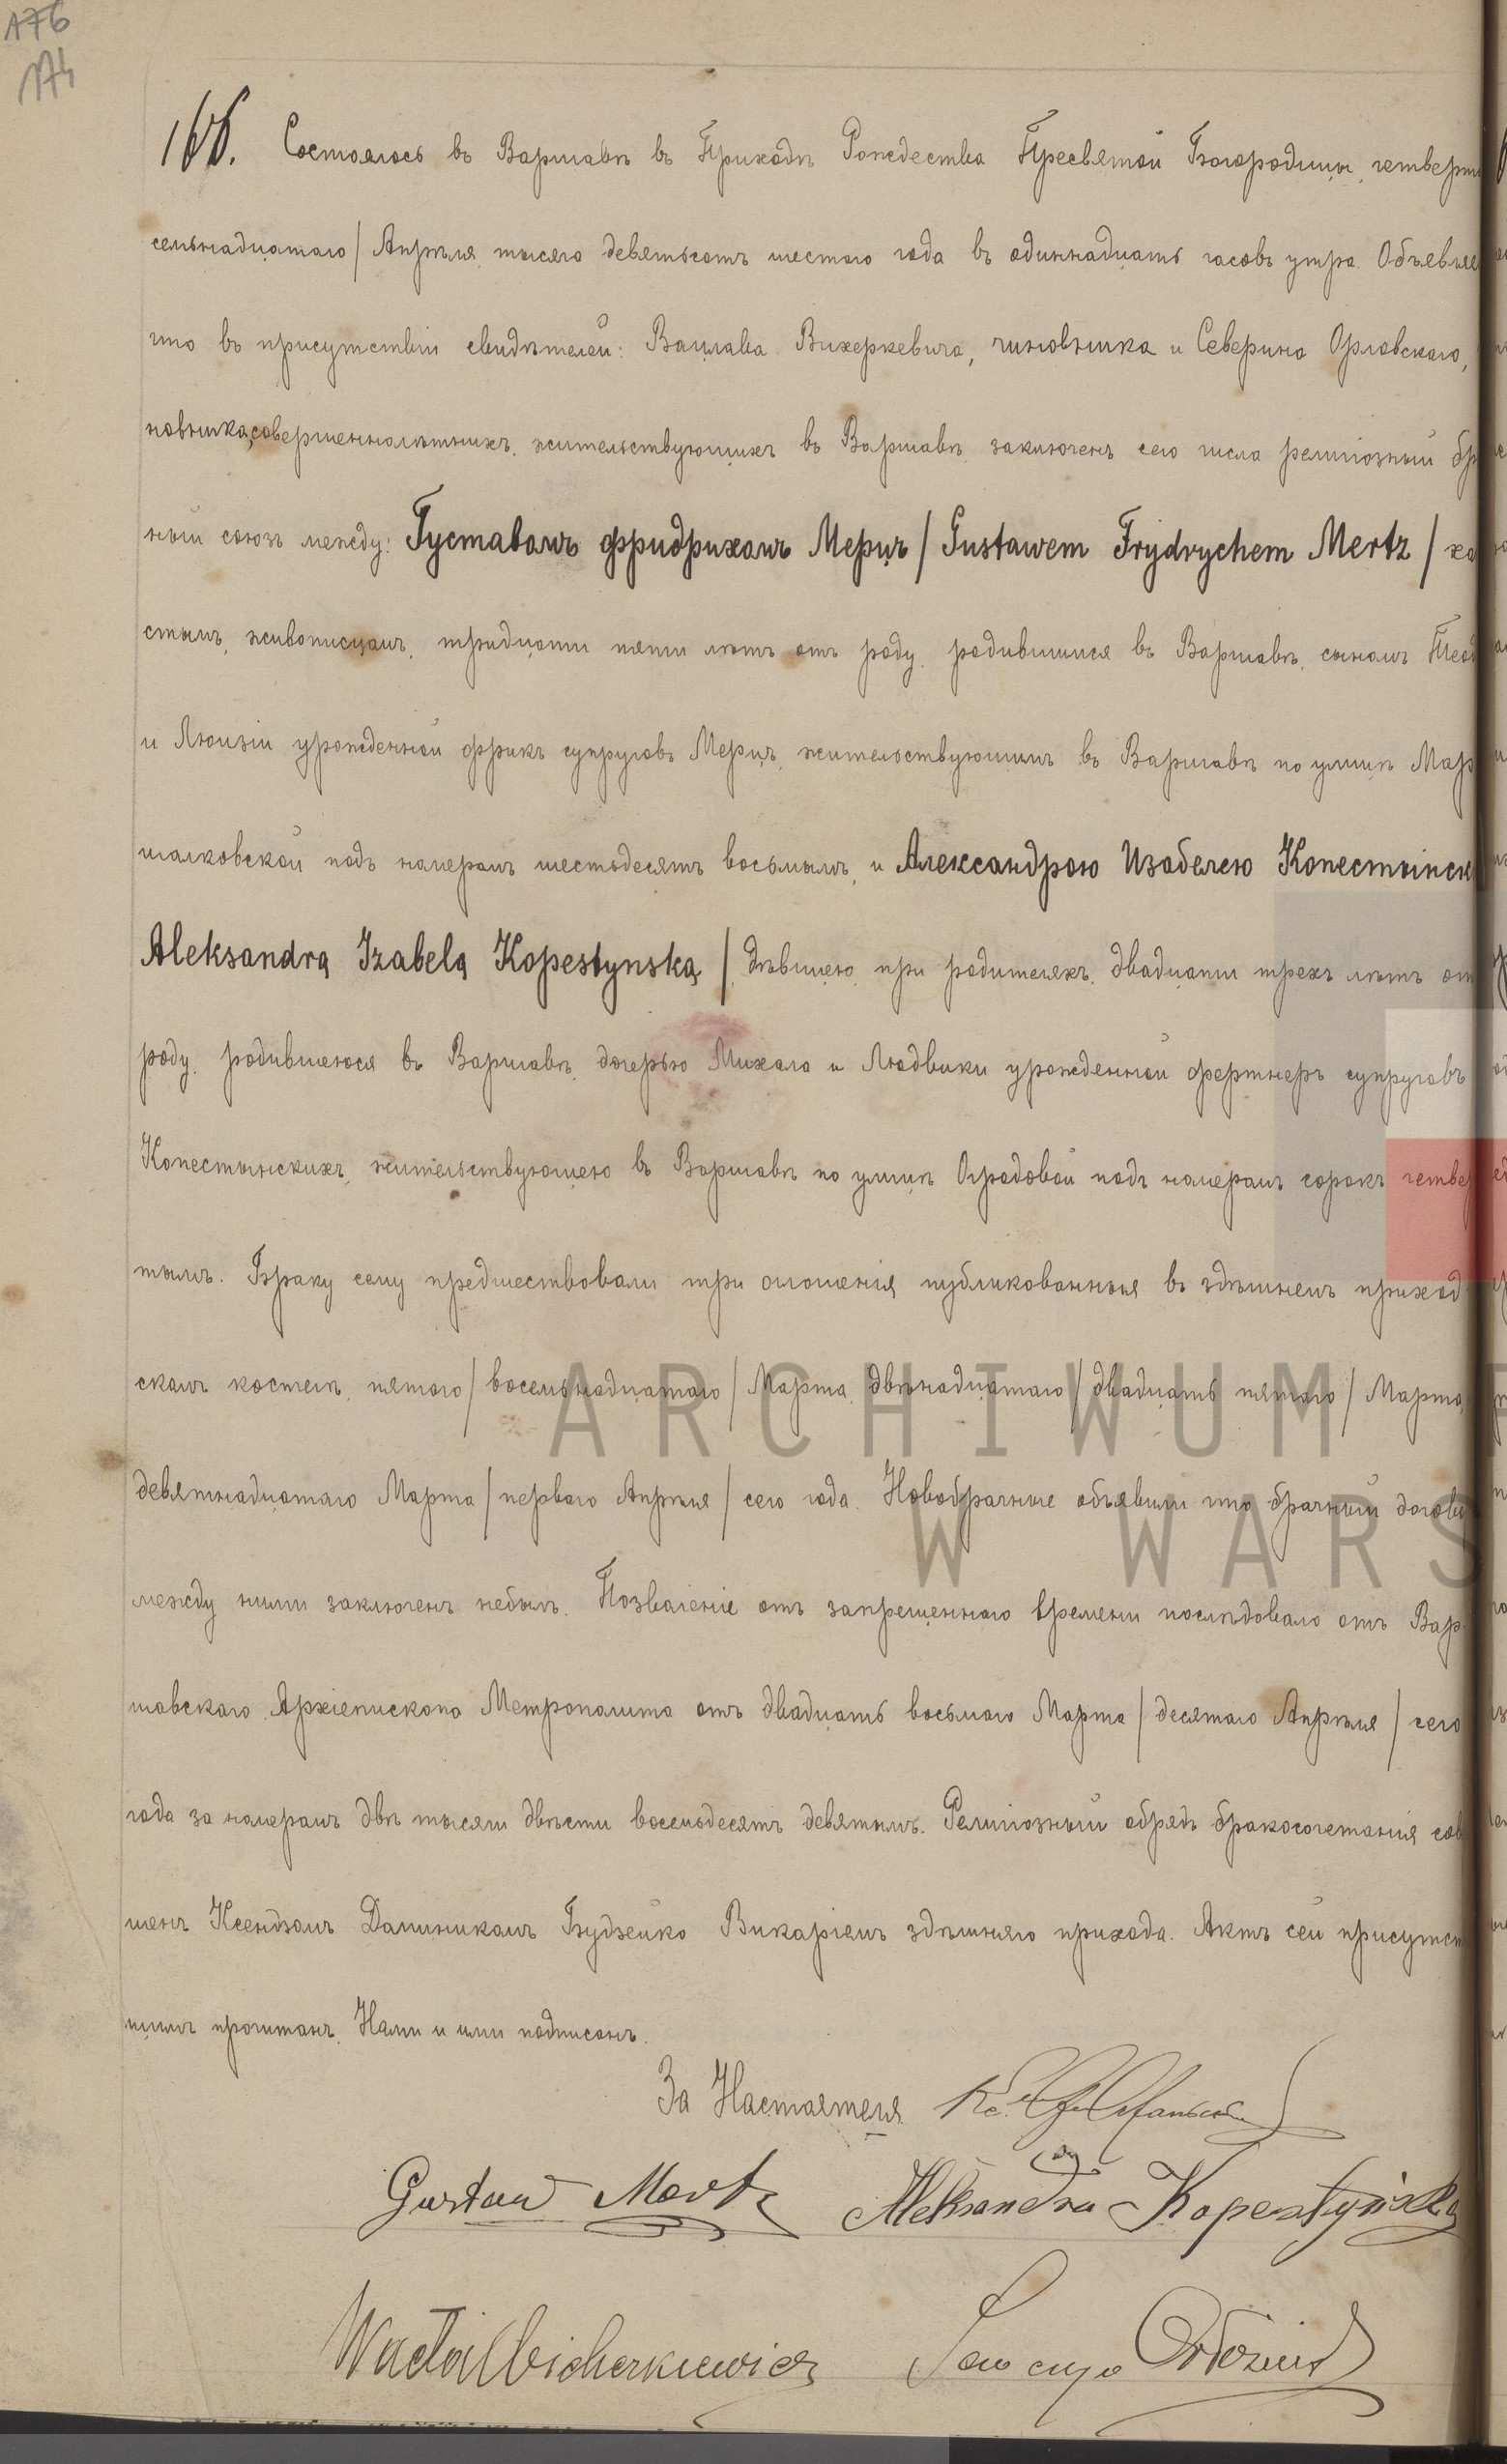 176
174
166. Состоялось въ Варшавѣ въ Приходѣ Рождества Пресвятой Богородицы, четверт
семьнадцатаго / Апрѣля, тысяча девятьсотъ шестаго года въ одиннадцать часовъ утра. Объявляе
что въ присутствіи свидѣтелей: Вацлава Вихеркевича, чиновника и Северина Орловскаго,
новника, совершеннолѣтнихъ, жительствующихъ въ Варшавѣ, заключенъ сего числа религіозный бр
ный союзъ между: Густавомъ Фридрихомъ Мерцъ / Gustawem Frydrychem Mertz / хо
стымъ, живописцомъ, тридцати пяти лѣтъ отъ роду, родившимся въ Варшавѣ, сыномъ Теод
и Люизіи урожденной Фрикъ супруговъ Мерцъ, жительствующимъ въ Варшавѣ по улицѣ Мар
шалковской подъ номеромъ шестьдесятъ восьмымъ, и Александрою Изабелею Копестынск
Aleksandrą Izabelą Kopestynską / дѣвицею, при родителяхъ, двадцати трехъ лѣтъ от
роду, родившеюся въ Варшавѣ, дочерью Михала и Людвики урожденной Фертнеръ супруговъ
Копестынскихъ, жительствующею въ Варшавѣ по улицѣ Огродовой подъ номеромъ сорокъ четвер
тымъ. Браку сему предшествовали три оглошенія публикованныя въ здѣшнемъ приход
скомъ костелѣ, пятаго / восемьнадцатаго / Марта, двѣнадцатаго / двадцать пятаго / Марта,
девятнадцатаго Марта / перваго Апрѣля / сего года. Новобрачные объявили что брачный догов
между ними заключенъ небылъ. Позволеніе отъ запрещеннаго времени послѣдовало отъ Вар
шавскаго Архіепископа Метрополита отъ двадцать восьмаго Марта / десятаго Апрѣля / сего
года за номеромъ двѣ тысячи двѣсти восемьдесятъ девятымъ. Религіозный обрядъ бракосочетанія сов
шенъ Ксендзомъ Доминикомъ Будзейко Викаріемъ здѣшняго прихода. Актъ сей присутст
щимъ прочитанъ, Нами и ими подписанъ.
За Настоятеля Кс.
Gustaw Mertz Aleksandra Kopestyńska
Wacław Wicherkiewicz
ARCHIWUM
W WARS